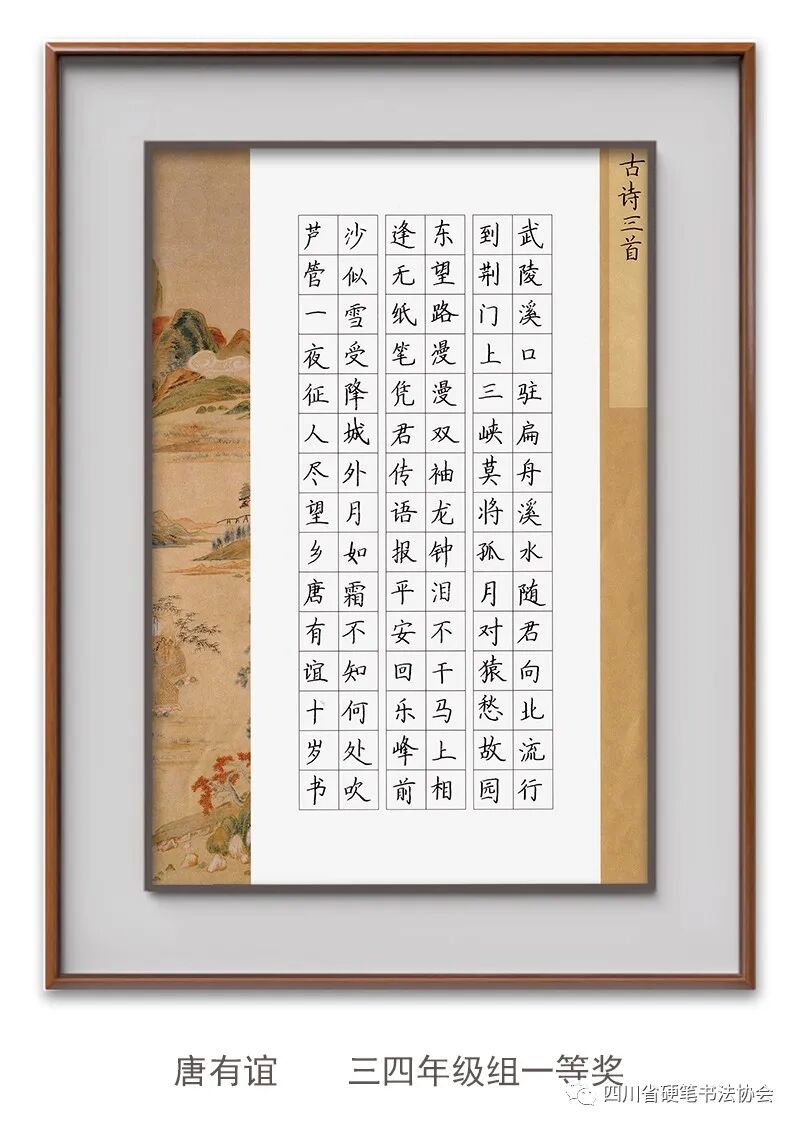 古诗三首
武陵溪口驻扁舟溪水随君向北流行
到荆门上三峡莫将孤月对猿愁故园
东望路漫漫双袖龙钟泪不干马上相
逢无纸笔凭君传语报平安回乐峰前
沙似雪受降城外月如霜不知何处吹
芦管一夜征人尽望乡唐有谊十岁书
唐有谊 三四年级组一等奖
四川省硬笔书法协会